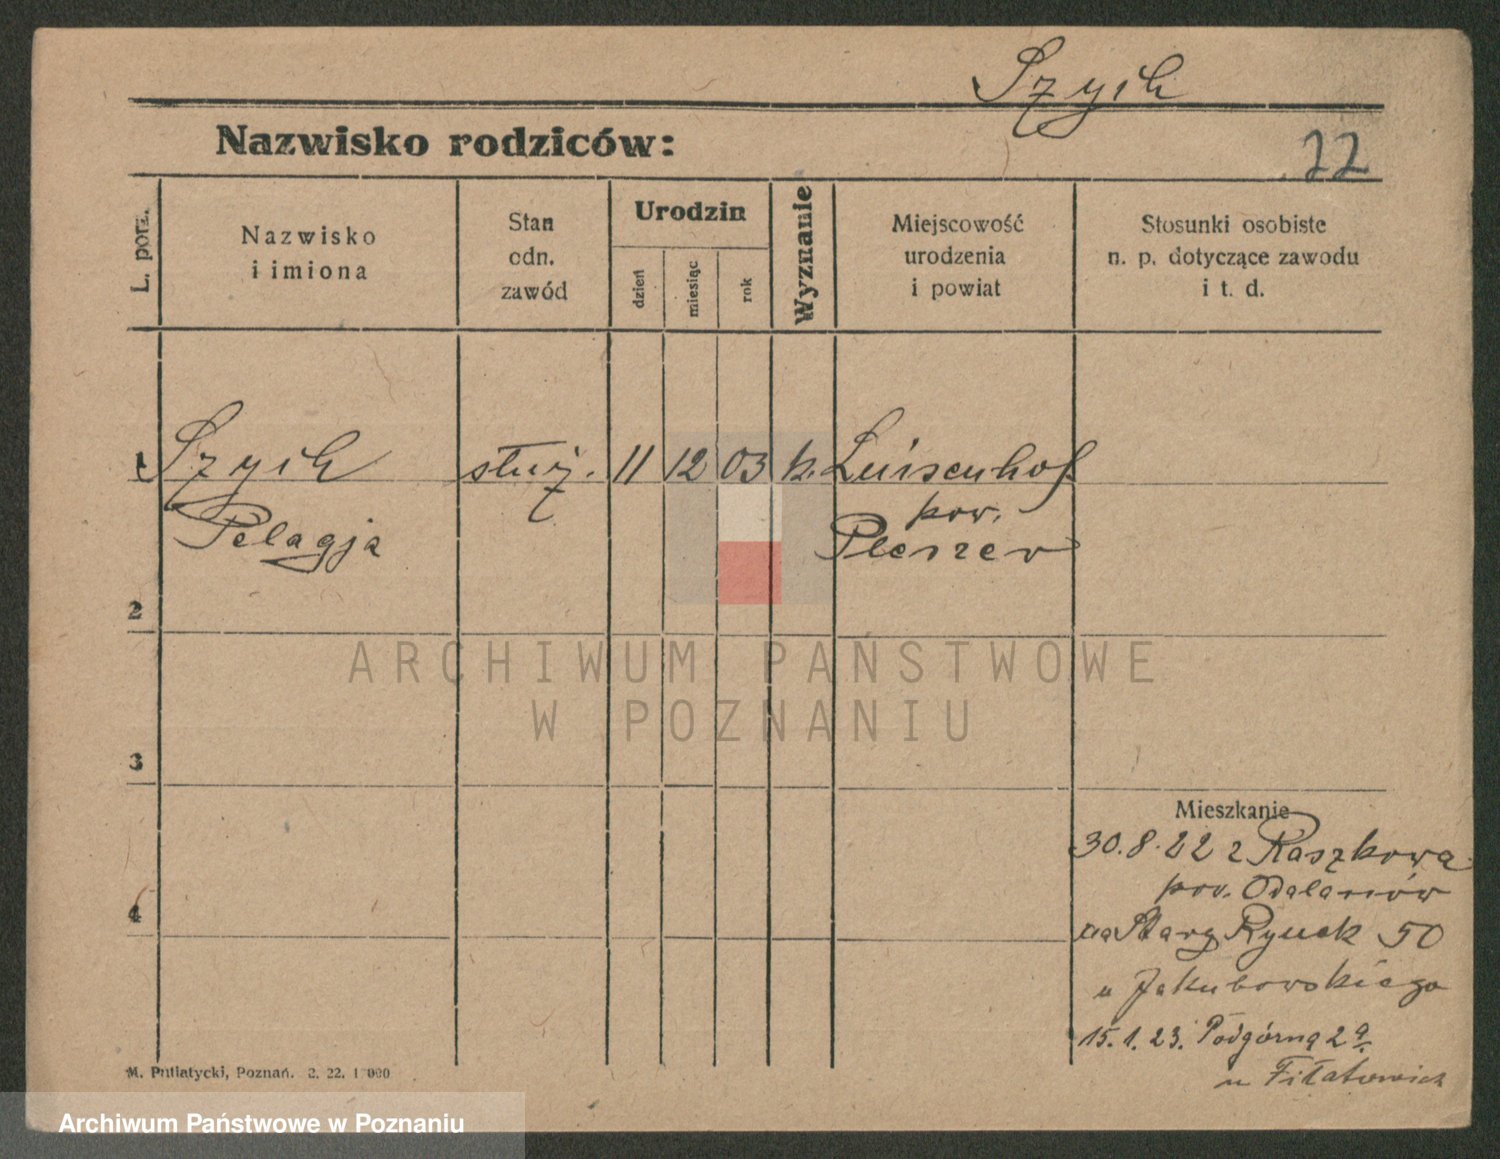 Szych
Nazwisko rodziców:
22
L. porz.
Nazwisko
i imiona
Stan
odn.
zawód
Urodzin
dzień
miesiąc
rok
Wyznanie
Miejscowość
urodzenia
i powiat
Stosunki osobiste
n. p. dotyczące zawodu
i t. d.
1 Szych służ. 11 12 03 k. Luisenhof
Pelagja
pow.
Pleszew
2
3
4
Mieszkanie
30.8.22 z Raszkowa
pow. Odalanów
na Starg Rynek 50
u Jakubowskiego
15.1.23. Podgórna 2a
u Fiłatowicz
M. Putiatycki, Poznań. 2. 22. 1 000
ARCHIWUM PAŃSTWOWE
W POZNANIU
Archiwum Państwowe w Poznaniu